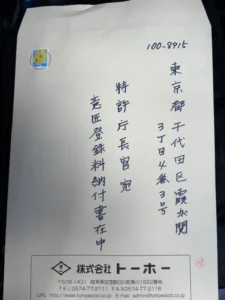 100-8915
東京都千代田区霞が関
3丁目4番3号
特許庁長官宛
意匠登録料納付書在中
株式会社トーホー
〒509-1431
TEL0574-77-2111 FAX0574-77-2115
URL http://www.tohowood.co.jp E-mail admin@tohowood.co.jp